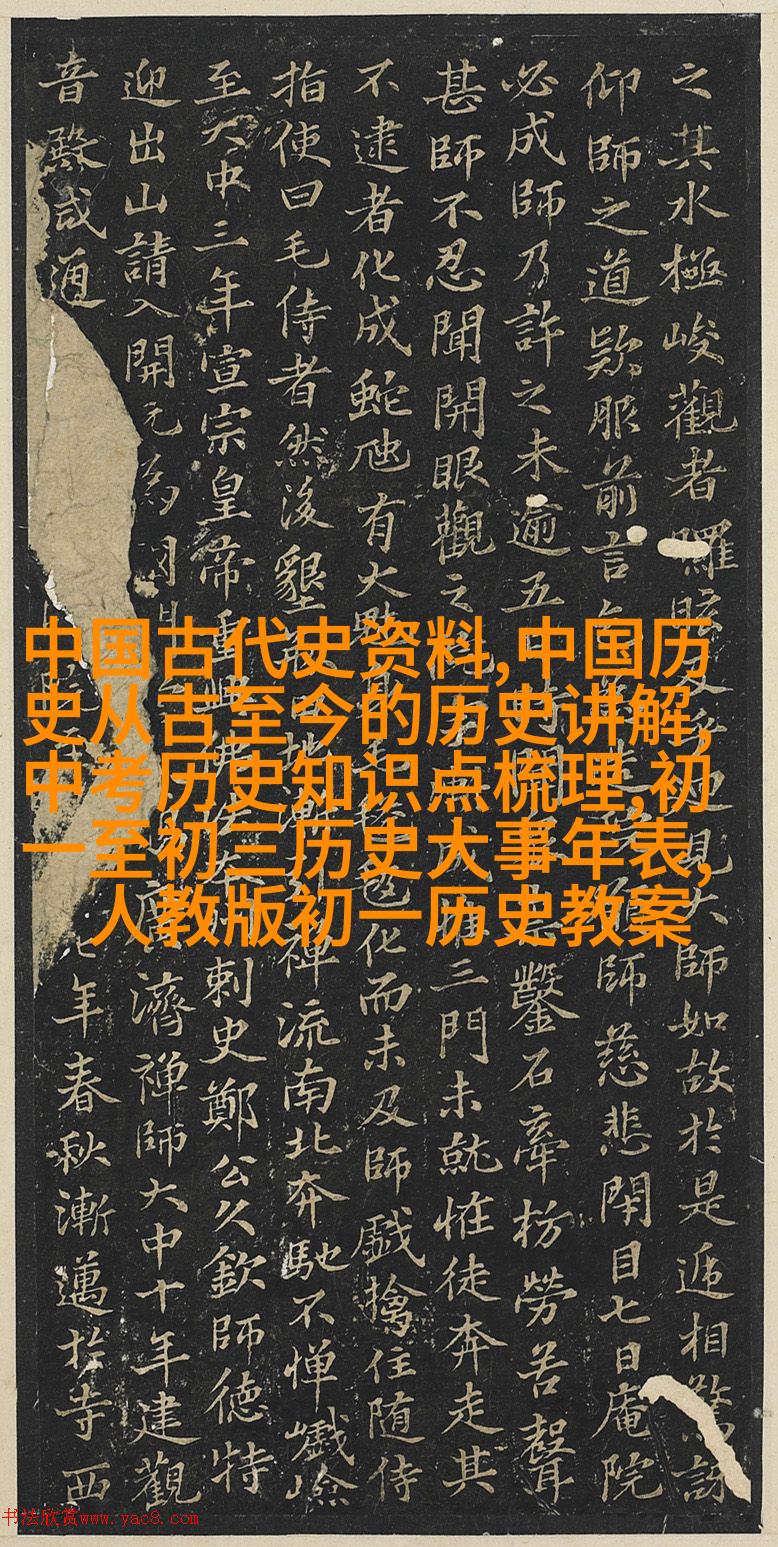 之其水極峻觀者眩見大師如故於是逓相驚訝
仰師之道歎服前言師慈悲閇目七日庵院
必成師乃許之未逾五日鑿石牽枋勞苦聲
甚師不忍聞開眼觀之三門未就恠徒奔走其
不逮者化成蛇虺有大化而未及師戲擒住随侍
指使曰毛侍者然後墾地禅流南北奔馳不惮巇嶮
至大中三年宣宗皇帝重刺史鄭公久欽師德特
迎出山請入開元為國濟禅師大中十年建觀
音殿咸通七年春秋漸邁於寺西
中国古代史资料,中国历
史从古至今的历史讲解,
中考历史知识点梳理,初
一至初三历史大事年表,
人教版初一历史教案
书法欣赏www.yac8.com